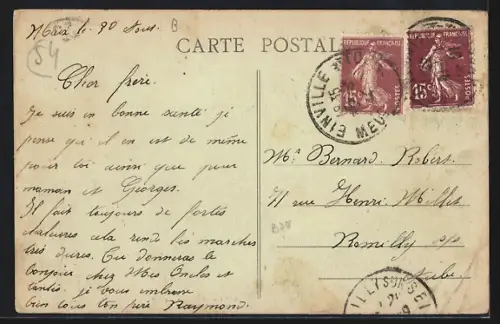 le 30 Aout
B
54
CARTE POSTALE
REPUBLIQUE FRANÇAISE
REPUBLIQUE FRANÇAISE
15c
15c
POSTES
EINVILLE
Cher frère
Je suis en bonne santé je
pense qu'il en est de même
pour toi ainsi que pour
maman et Georges.
Il fait toujours de fortes
chaleurs cela rends les marches
très dures. Tu donneras le
bonjour chez Mes Oncles et
tantes. je vous embrasse
bien tous ton frère Raymond.
Mr Bernard Robert.
71 rue Henri Millet
Romilly s/s
Aube.